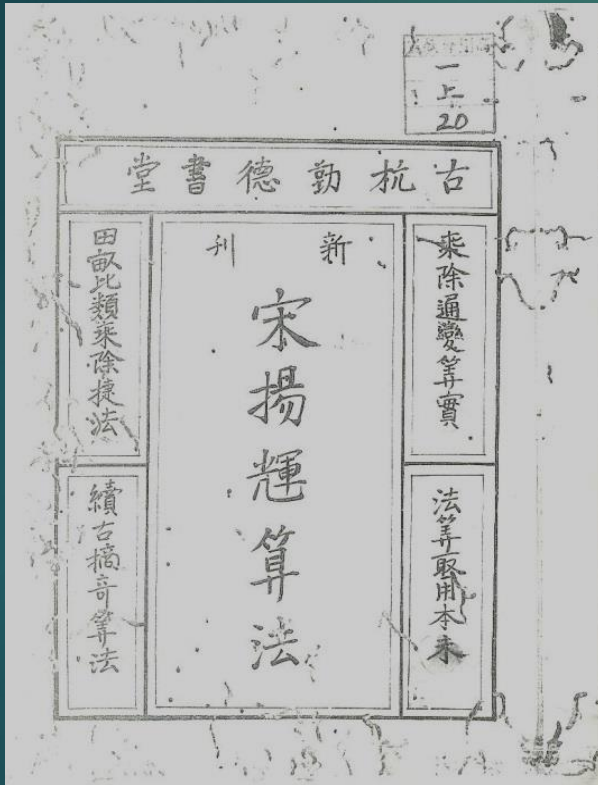 一
上
20
古杭勤德書堂
乗除通變筭實
法筭取用本末
新刊
宋揚輝算法
田畝比類乗除捷法
續古摘奇筭法